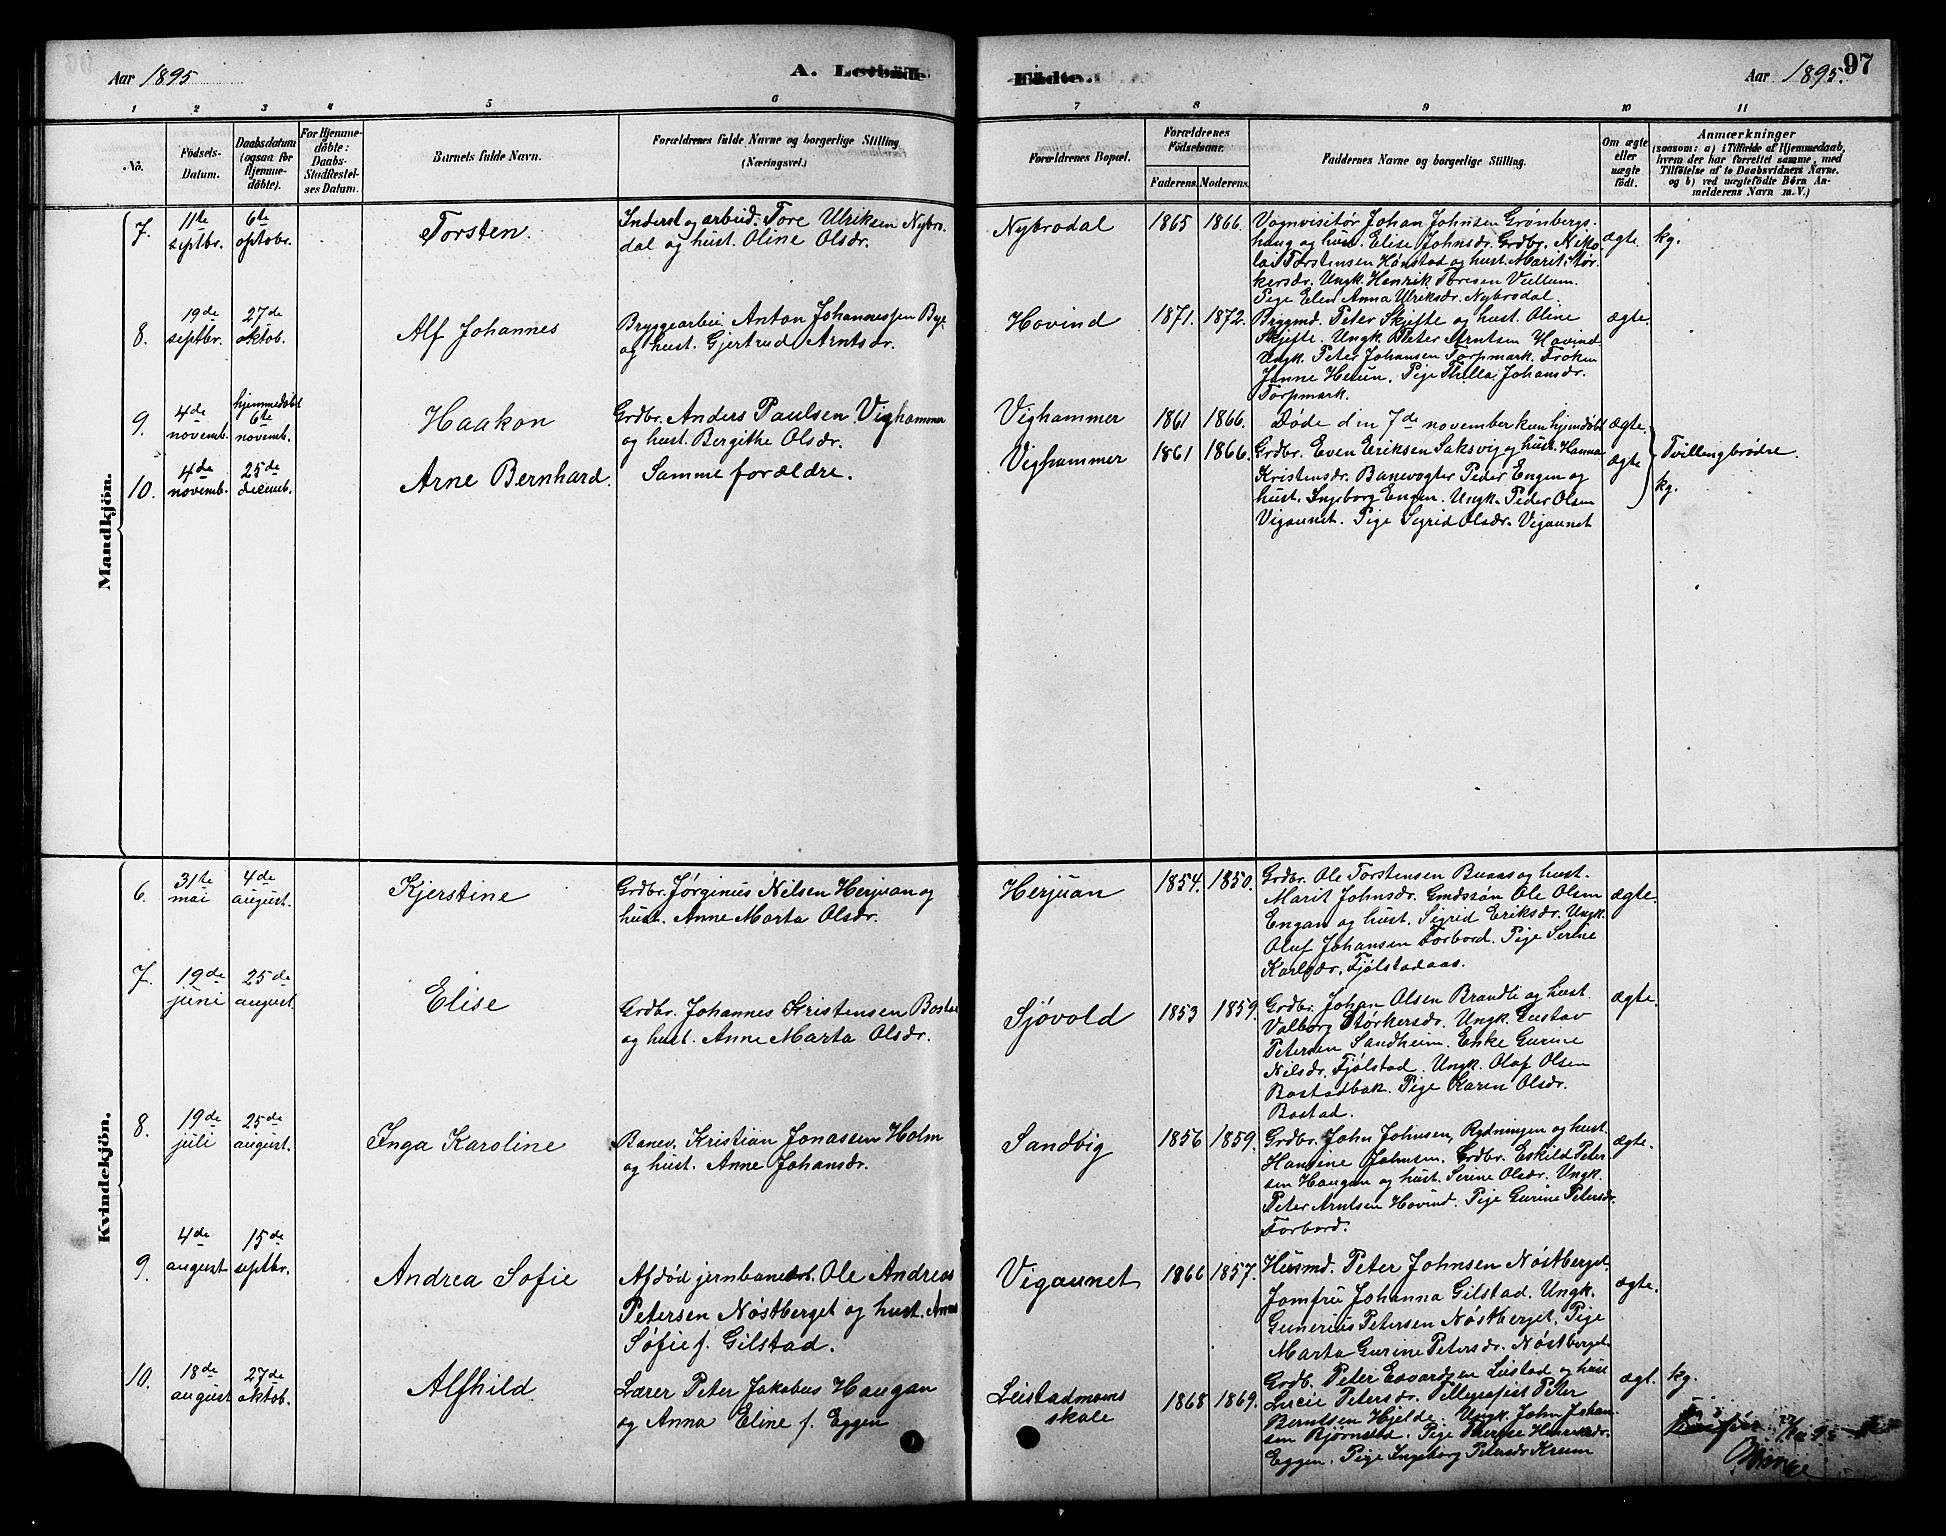 Aar 1895
A. Levende
Fødte.
Aar 1895.
97
1 2 3 4 5 6 7 8 9 10 11
No.
Fødsels-
Datum.
Daabsdatum
(ogsaa for
Hjemme-
døbte).
For Hjemme-
døbte:
Daabs-
Stadfæstel-
ses Datum.
Barnets fulde Navn.
Forældrenes fulde Navne og borgerlige Stilling.
(Næringsvei.)
Forældrenes Bopæl.
Forældrenes
Fødselsaar.
Faderens. Moderens.
Faddernes Navne og borgerlige Stilling.
Om ægte
eller
uægte
født.
Anmærkninger
(saasom: a) i Tilfælde af Hjemmedaab,
hvem der har forrettet samme, med
Tilføielse af to Daabsvidners Navne.
og b) ved uægtefødte Børn An-
melderens Navn m. V.)
Mandkjön.
7.
11te
septbr.
6te
optobr.
Torsten.
Inderst og arbeid. Tore Ulriksen Nybro-
dal og hust. Oline Olsdr.
Nybrodal
1865 1866.
Vognvisitør Johan Johnsen Grønbergs-
haug og hust. Elise Johnsdr. Grdbr. Niko-
lai Torstensen Hønstad og hust. Marit Stør-
kersdr. Ungk. Henrik Toresen Vellum.
Pige Elen Anna Ulriksdr. Nybrodal.
ægte.
kg.
8.
19de
septbr.
27de
oktob.
Alf Johannes
Bryggearbei. Anton Johannessen Bye
og hust. Gjertrud Arntsdr.
Hovind
1871. 1872.
Brygmd. Peter Skjefte og hust. Oline
Skjefte. Ungk. Peter Arntsen Hovind.
Ungk. Peter Johansen Torpmark. Frøken
Janne Heiun. Pige Thilla Johansdr.
Torpmark.
ægte.
9.
4de
novemb.
hjemmedøbt
6te
novemb.
Haakon
Grdbr. Anders Paulsen Vighammer
og hust. Bergithe Olsdr.
Vighammer
1861 1866.
Døde den 7de november kun hjemdøbt
ægte.
10.
4de
novemb.
25de
decemb.
Arne Bernhard.
Samme forældre.
Vighammer
1861 1866.
Grdbr. Even Eriksen Saksvig og hust. Hanna
Kristensdr. Banevogter Peder Engen og
hust. Ingeborg Engen. Ungk. Peder Olsen
Vigaunet. Pige Sigrid Olsdr. Vigaunet
ægte
Tvillingbrødre.
kg.
Kvindekjön.
6.
31te
mai
4de
august.
Kjerstine
Grdbr. Jørginus Nilsen Herjuan og
hust. Anne Marta Olsdr.
Herjuan
1854. 1850.
Grdbr. Ole Torstensen Buaas og hust.
Marit Johnsdr. Gmdssøn Ole Olsen
Engan og hust. Sigrid Eriksdr. Ungk.
Oluf Johansen Forbord. Pige Serine
Karlsdr. Fjølstadaas.
ægte.
7.
19de
juni
25de
august
Elise
Grdbr. Johannes Kristensen Bostad
og hust. Anne Marta Olsdr.
Sjøvold
1853 1859.
Grdbr. Johan Olsen Brandli og hust.
Valborg Størkersdr. Ungk. Gustav
Petersen Sandheim. Enke Gurine
Nilsdr. Fjølstad. Ungk. Olaf Olsen
Bostadbak. Pige Karen Olsdr.
Bostad.
ægte.
8.
19de
juli
25de
august.
Inga Karoline
Banev. Kristian Jonassen Holm
og hust. Anne Johansdr.
Sandvig
1856 1859.
Grdbr. John Johnsen, Rydningen og hust.
Hansine Johnsen. Grdbr. Eskild Peter-
sen Haugan og hust. Serine Olsdr. Ungk.
Peter Arntsen Hovind. Pige Gurine Petersdr.
Forbord.
ægte.
9.
4de
august
15de
septbr.
Andrea Sofie
Afdød jernbanearb. Ole Andreas
Petersen Nøstberget og hust. Anna
Sofie f. Gilstad.
Vigaunet
1866 1857.
Husmd. Peter Johnsen Nøstberget.
Jomfru Johanna Gilstad. Ungk.
Gunerius Petersen Nøstberget. Pige
Marta Gurine Petersdr. Nøstberget
ægte.
10.
18de
august
27de
oktob.
Alfhild
Lærer Peter Jakobus Haugan
og Anna Eline f. Eggen
Leistadmoens
skole
1868 1869.
Grdb. Peter Edvardsen Leistad og hust
Lucie Petersdr. Tellegrafist Peter
Berntsen Hjelde. Ungk. John Johan-
sen Bjørnstad. Pige Therese Henriksdr.
Eggen. Pige Ingeborg Petersdr. Kreum
ægt.
kg.